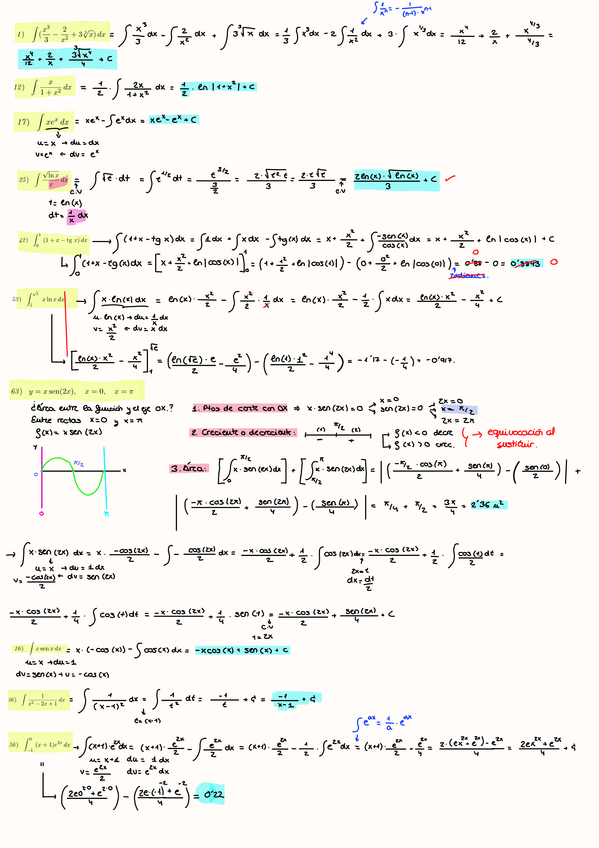 ∫ 1/xⁿ = - 1/((n-1)·xⁿ⁻¹)
1) ∫(x³/3 - 2/x² + 3∛x) dx = ∫ x³/3 dx - ∫ 2/x² dx + ∫ 3∛x dx = 1/3 ∫x³dx - 2 ∫ 1/x² dx + 3·∫ x^(1/3) dx = x⁴/12 + 2/x + x^(4/3)/(4/3) =
x⁴/12 + 2/x + 3∛x⁴/4 + C
12) ∫ x/(1+x²) dx = 1/2 · ∫ 2x/(1+x²) dx = 1/2 · ln |1+x²| + C
17) ∫ xeˣ dx = xeˣ - ∫eˣdx = xeˣ - eˣ + C
u = x → du = dx
v = eˣ ← dv = eˣ
25) ∫ √ln x / x dx = ∫ √t · dt = ∫ t^(1/2) dt = t^(3/2)/(3/2) = 2·√t²·t/3 = 2·t√t/3 = 2ln(x)·√ln(x)/3 + C
C.V C.V
t = ln(x)
dt = 1/x dx
42) ∫₀¹ (1 + x - tg x) dx → ∫(1+x-tgx)dx = ∫1dx + ∫x dx - ∫tg(x)dx = x + x²/2 + ∫ -sen(x)/cos(x) dx = x + x²/2 + ln |cos(x)| + C
∫₀¹ (1+x-tg(x)dx = [x + x²/2 + ln|cos(x)|]₀¹ = (1 + 1²/2 + ln|cos(1)|) - (0 + 0²/2 + ln|cos(0)|) = - 0 =
radianes.
53) ∫₁^√e x ln x dx → ∫ x·ln(x) dx = ln(x)·x²/2 - ∫ x²/2 · 1/x dx = ln(x)·x²/2 - 1/2 · ∫ x dx = ln(x)·x²/2 - x²/4 + C
u = ln(x) → du = 1/x dx
v = x²/2 ← dv = x dx
[ln(x)·x²/2 - x²/4]₁^√e = (ln(√e)·e/2 - e²/4) - (ln(1)·1²/2 - 1⁴/4) = -1'17 - (-1/4) = -0'917.
63) y = x sen(2x), x = 0, x = π
¿Área entre la función y el eje OX?
Entre rectas x=0 y x=π
f(x) = x sen (2x)
1. Ptos de corte con OX ⇒ x·sen(2x) = 0 → x=0
sen(2x)=0 → 2x = 0
x = π/2
2x = 2π
2. Creciente o decreciente:
(-) π/2 (+)
f(x) < 0 decre
f(x) > 0 crec.
→ equivocación al sustituir.
0 π/2 π x
3. Área: [∫₀^(π/2) x·sen(2x)dx] + [∫_(π/2)^π x·sen(2x)dx] = |(-π/2 · cos(π)/2 + sen(π)/4) - (sen(0)/2)| +
|(-π·cos(2π)/2 + sen(2π)/4) - (sen(π)/4)| = π/4 + π/2 = 3π/4 = 2'36 u²
→ ∫ x·sen(2x) dx = x·-cos(2x)/2 - ∫ - cos(2x)/2 dx = -x·cos(2x)/2 + 1/2 · ∫ cos(2x)dx = -x·cos(2x)/2 + 1/2 · ∫ cos(t)/2 dt =
u = x → du = 1 dx
v = -cos(2x)/2 ← dv = sen(2x)
2x = t
dx = dt/2
-x·cos(2x)/2 + 1/4 · ∫ cos(t)dt = -x·cos(2x)/2 + 1/4 · sen(t) = -x·cos(2x)/2 + sen(2x)/4 + C
C.V
t = 2x
16) ∫ x sen x dx = x·(-cos(x)) - ∫ cos(x)dx = -xcos(x) + sen(x) + C
u = x → du = 1
dv = sen(x) → v = -cos(x)
36) ∫ 1/(x² - 2x + 1) dx = ∫ 1/(x-1)² dx = ∫ 1/t² dt = -1/t + C = -1/(x-1) + C
t = (x-1)
∫ e^(ax) = 1/a · e^(ax)
56) ∫₋₁⁰ (x + 1)e²ˣ dx → ∫(x+1)·e²ˣdx = (x+1)·e²ˣ/2 - ∫ e²ˣ/2 dx = (x+1)·e²ˣ/2 - 1/2 · ∫e²ˣdx = (x+1)·e²ˣ/2 - e²ˣ/4 = 2·(e²ˣx + e²ˣ) - e²ˣ/4 = 2e²ˣx + e²ˣ/4 + C
u = x+1 du = 1 dx
v = e²ˣ/2 dv = e²ˣ dx
(2e0²⁰ + e²·⁰/4) - (2e·(-1)⁻² + e⁻²/4) = 0'22